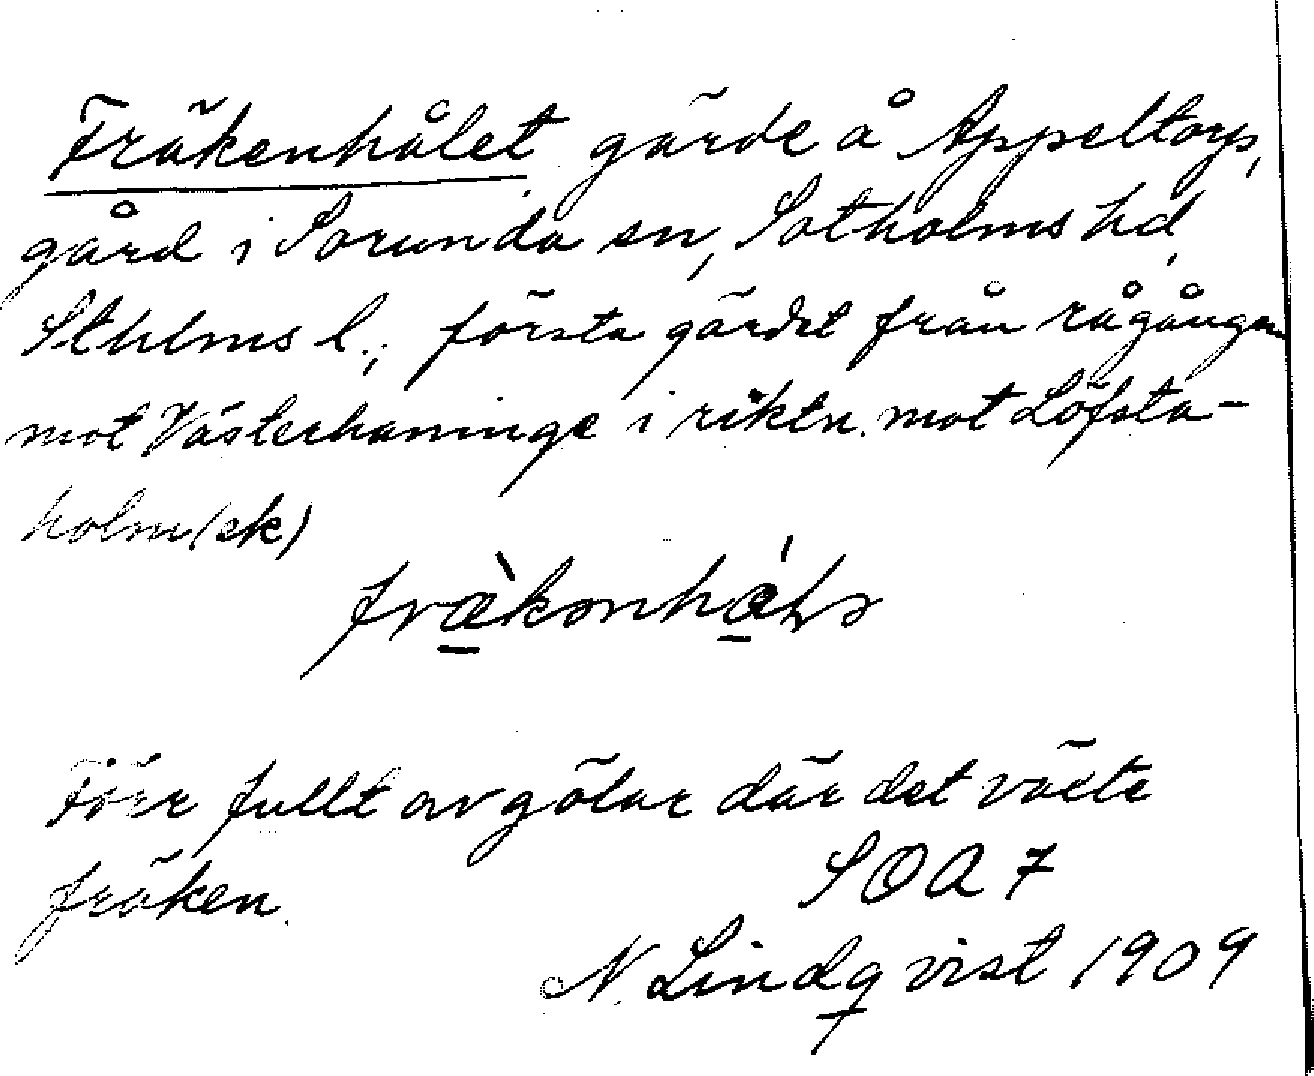 Fräkenhålet, gärde å Äppeltorps
gård i Sorunda sn, Sotholms hd,
Sthlms l.; första gärdet från rågången
mot Västerhaninge i riktn. mot Löfsta-
holm (ek)
Förr fullt av gölar där det växte
fräken.
SOA 7
N. Lindqvist 1909